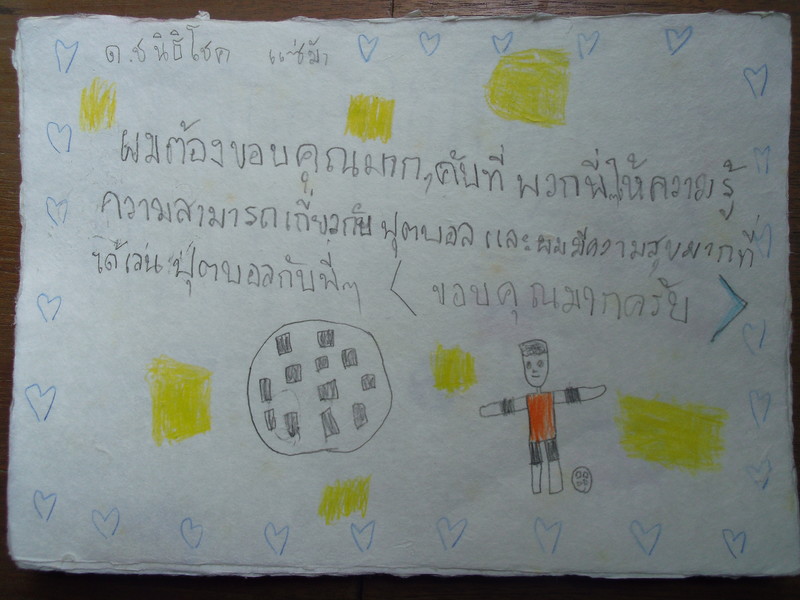 ด.ช นิธิโชค แซ่ม้า
ผมต้องขอบคุณมากๆคับที่ พวกพี่ๆให้ความรู้
ความสามารถเกี่ยวกับ ฟุตบอล และผมมีความสุขมากที่
ได้เล่น ฟุตบอลกับพี่ๆ < ขอบคุณมากครับ >